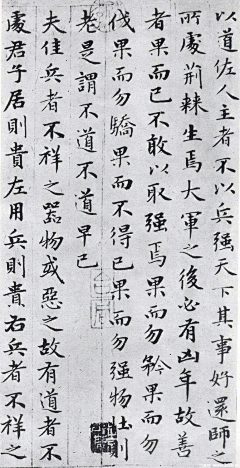 以道佐人主者不以兵强天下其事好還師之
所處荊棘生焉大軍之後必有凶年故善
者果而已不敢以取强焉果而勿矜果而勿
伐果而勿驕果而不得已果而勿强物壯則
老是謂不道不道早已
夫佳兵者不祥之器物或惡之故有道者不
處君子居則貴左用兵則貴右兵者不祥之